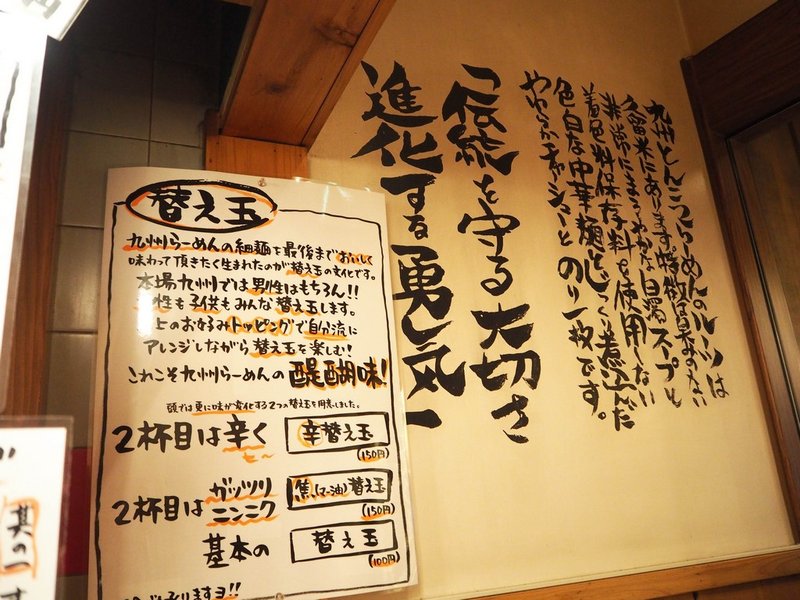 九州とんこつらーめんのルーツは
久留米にあります。特徴は臭みのない
非常にまろやかな白濁スープと
着色料保存料を使用しない
色白な中華麺とじっくり煮込んだ
やわらかチャーシューとのり一枚です。
「伝統を守る大切さ
進化する勇気」
替え玉
九州らーめんの細麺を最後までおいしく
味わって頂きたく生まれたのが替え玉の文化です。
本場九州では男性はもちろん!!
性も子供もみんな替え玉します。
上のお好みトッピングで自分流に
アレンジしながら替え玉を楽しむ!
これこそ九州らーめんの醍醐味!
頭では更に味が変化する2つの替え玉を用意しました。
2杯目は辛く 辛替え玉
(150円)
2杯目はガッツリニンニク 焦(マー油)替え玉
(150円)
基本の 替え玉
(100円)
承りますヨ!!
其の一